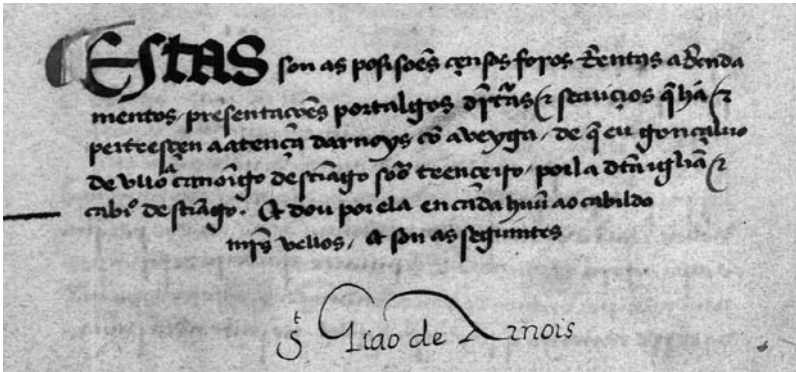 Estas son as posisoẽs çensos foros Rentas aRenda
mentos, presentaçoẽs portalgos dr̃tas & seruiços q̃ há &
perteesçen a atenẽça darnoys cõ aveyga, de q̃ eu gonçaluo
de vlloa canonigo de sc̃iago soõ teenceiro, por la dc̃ta iglia &
cabi.º de sc̃iago. Et dou por ela en cada huũ ao cabildo
mr̃s vellos, & son as seguintes
S.t Giao de Arnois